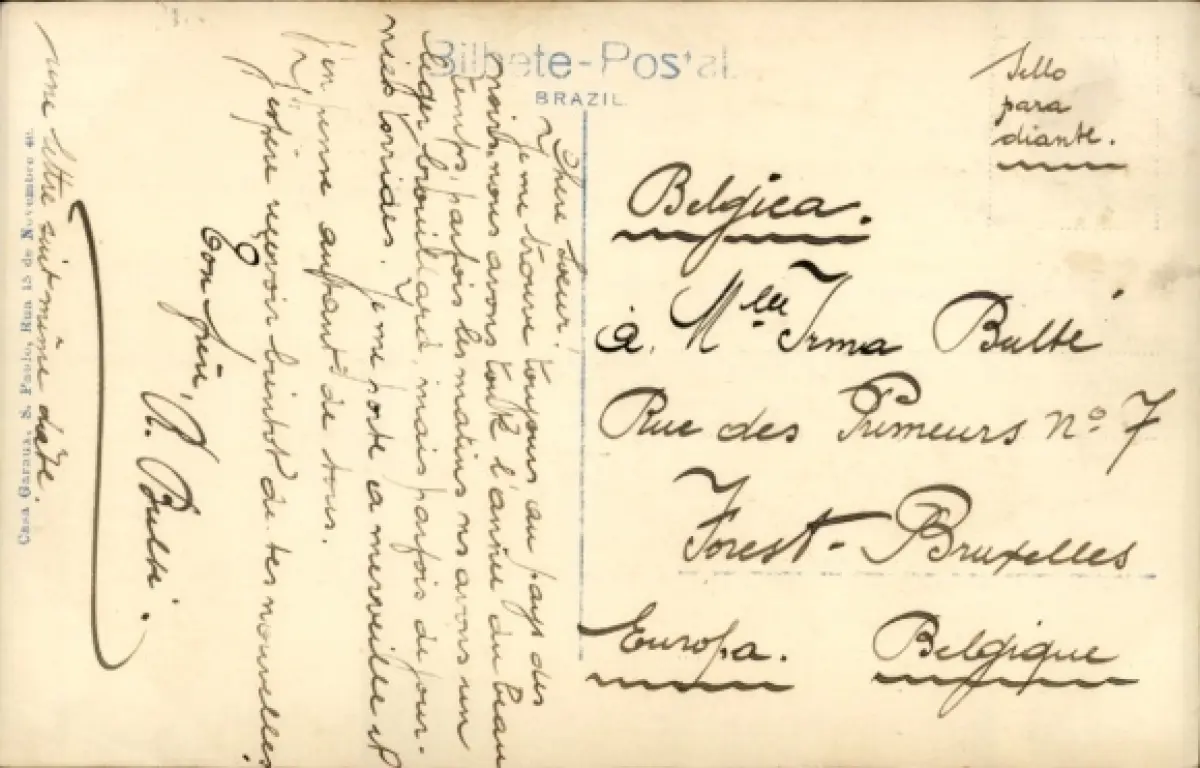 Bilhete-Postal
BRAZIL
Sello
para
diante.
Belgica.
à Mlle Irma Bulté
Rue des Primeurs nº 7
Forest-Bruxelles
Europa. Belgique
Chère soeur!
Je me trouve toujours au pays des
noirs, nous avons toute l'année du beau
temps, parfois les matins ns avons un
léger brouillard, mais parfois de jour-
nées torrides. Je me porte à merveille et
j'en pense autant de tous.
J'espère reçevoir bientot de tes nouvelles
Ton frère,
Bulté.
une lettre suit même date.
Casa Garaux, S. Paulo, Rua 15 de Novembro 40.